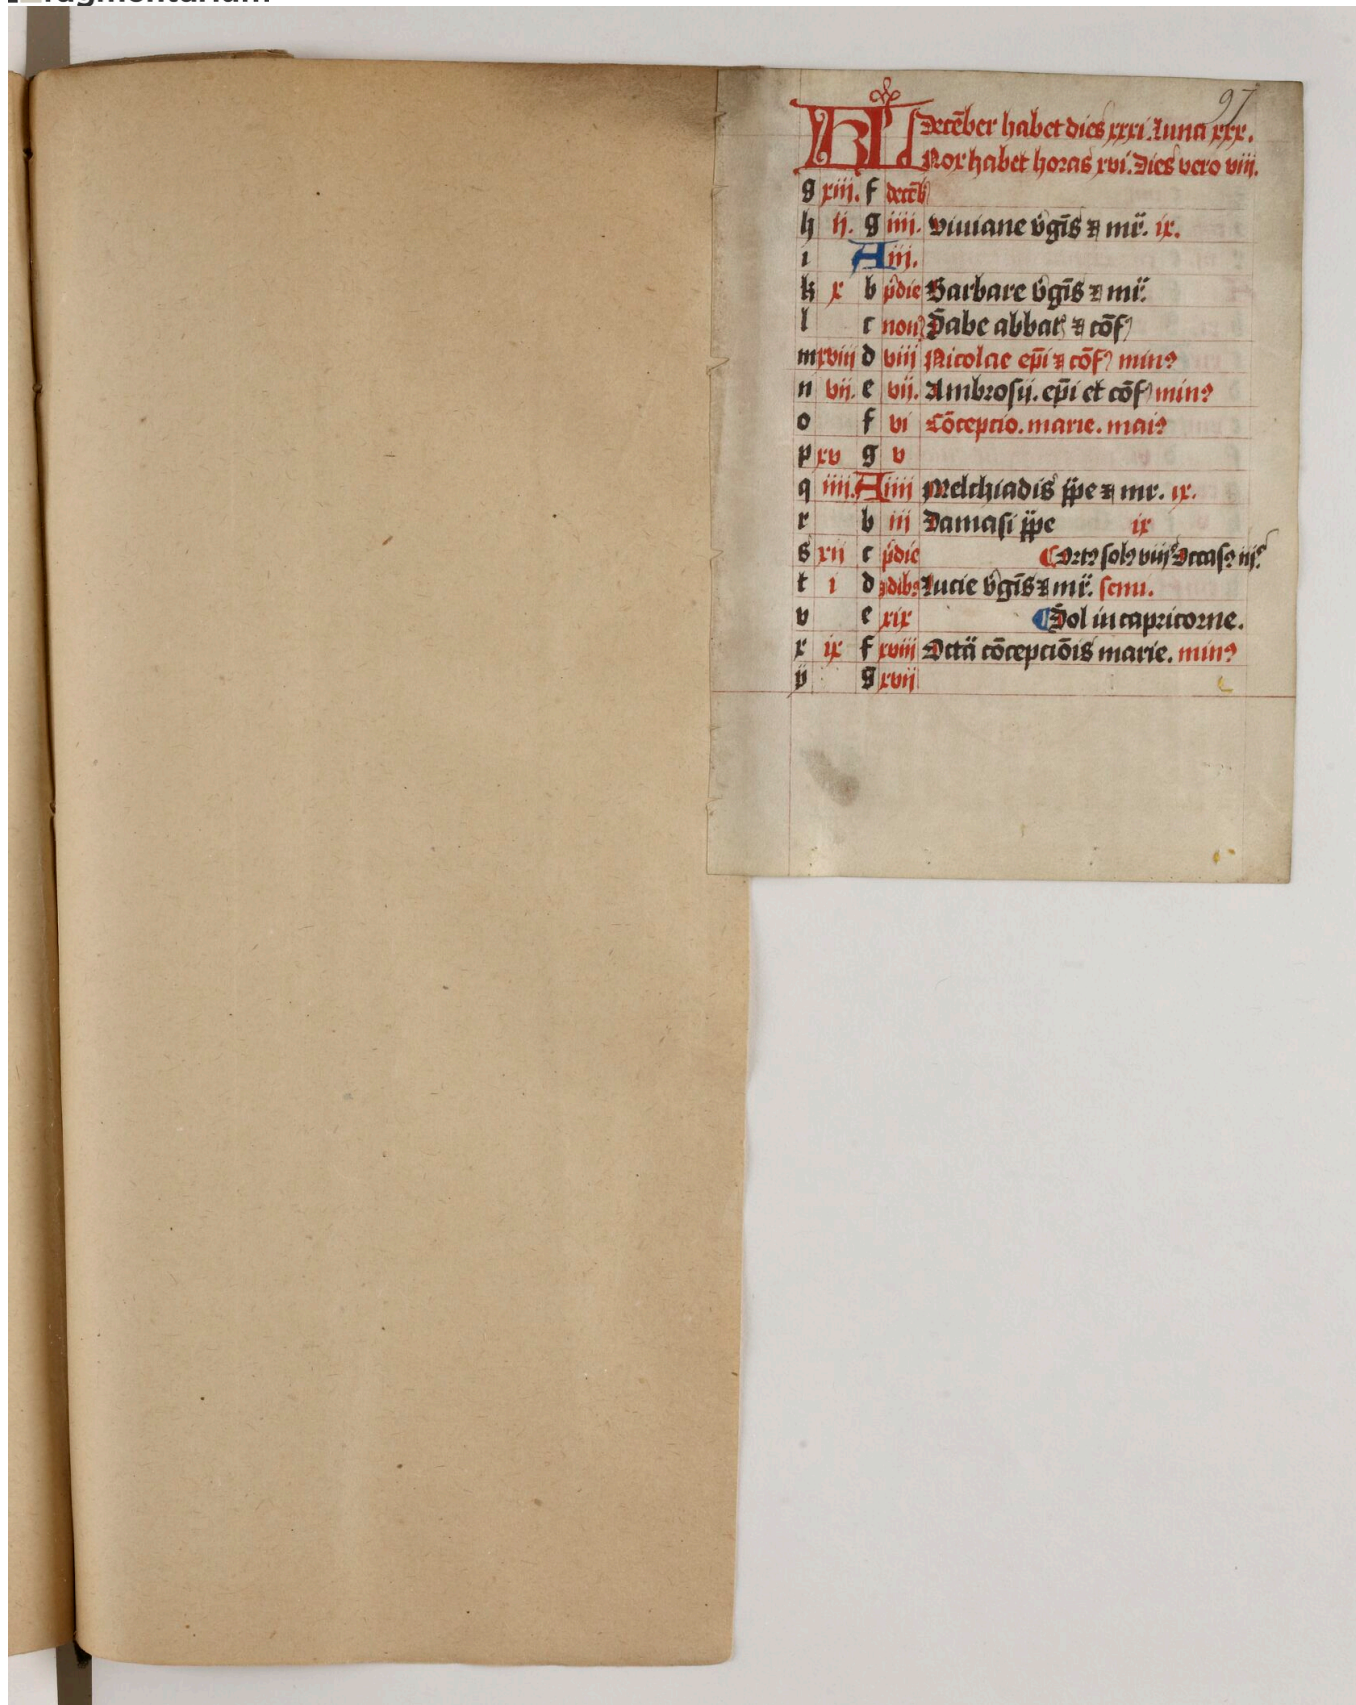 97
KL Decēber habet dies xxxi. Luna xxx.
Nox habet horas xvi. Dies vero viii.
g xiii. f decēb
h ii. g iiii. Viuiane v̄gīs ⁊ mr̄. ix.
i A iii.
k x b p̄die Barbare v̄gīs ⁊ mr̄.
l c non Sabe abbat ⁊ cōf
m xviii d viii Nicolae ep̄i ⁊ cōf min⁹
n vii. e vii. Ambrosii. ep̄i et cōf min⁹
o f vi Cōceptio. marie. mai⁹
p xv g v
q iiii. A iiii Melchiadis p̄pe ⁊ mr. ix.
r b iii Damasi p̄pe ix
s xii c p̄die Ort⁹ sol⁹ viii Occas⁹ iii
t i d idib⁹ Lucie v̄gīs ⁊ mr̄. seru.
v e xix Sol in capricorne.
x ix f xviii Octā cōcepciōis marie. min⁹
ÿ g xvii